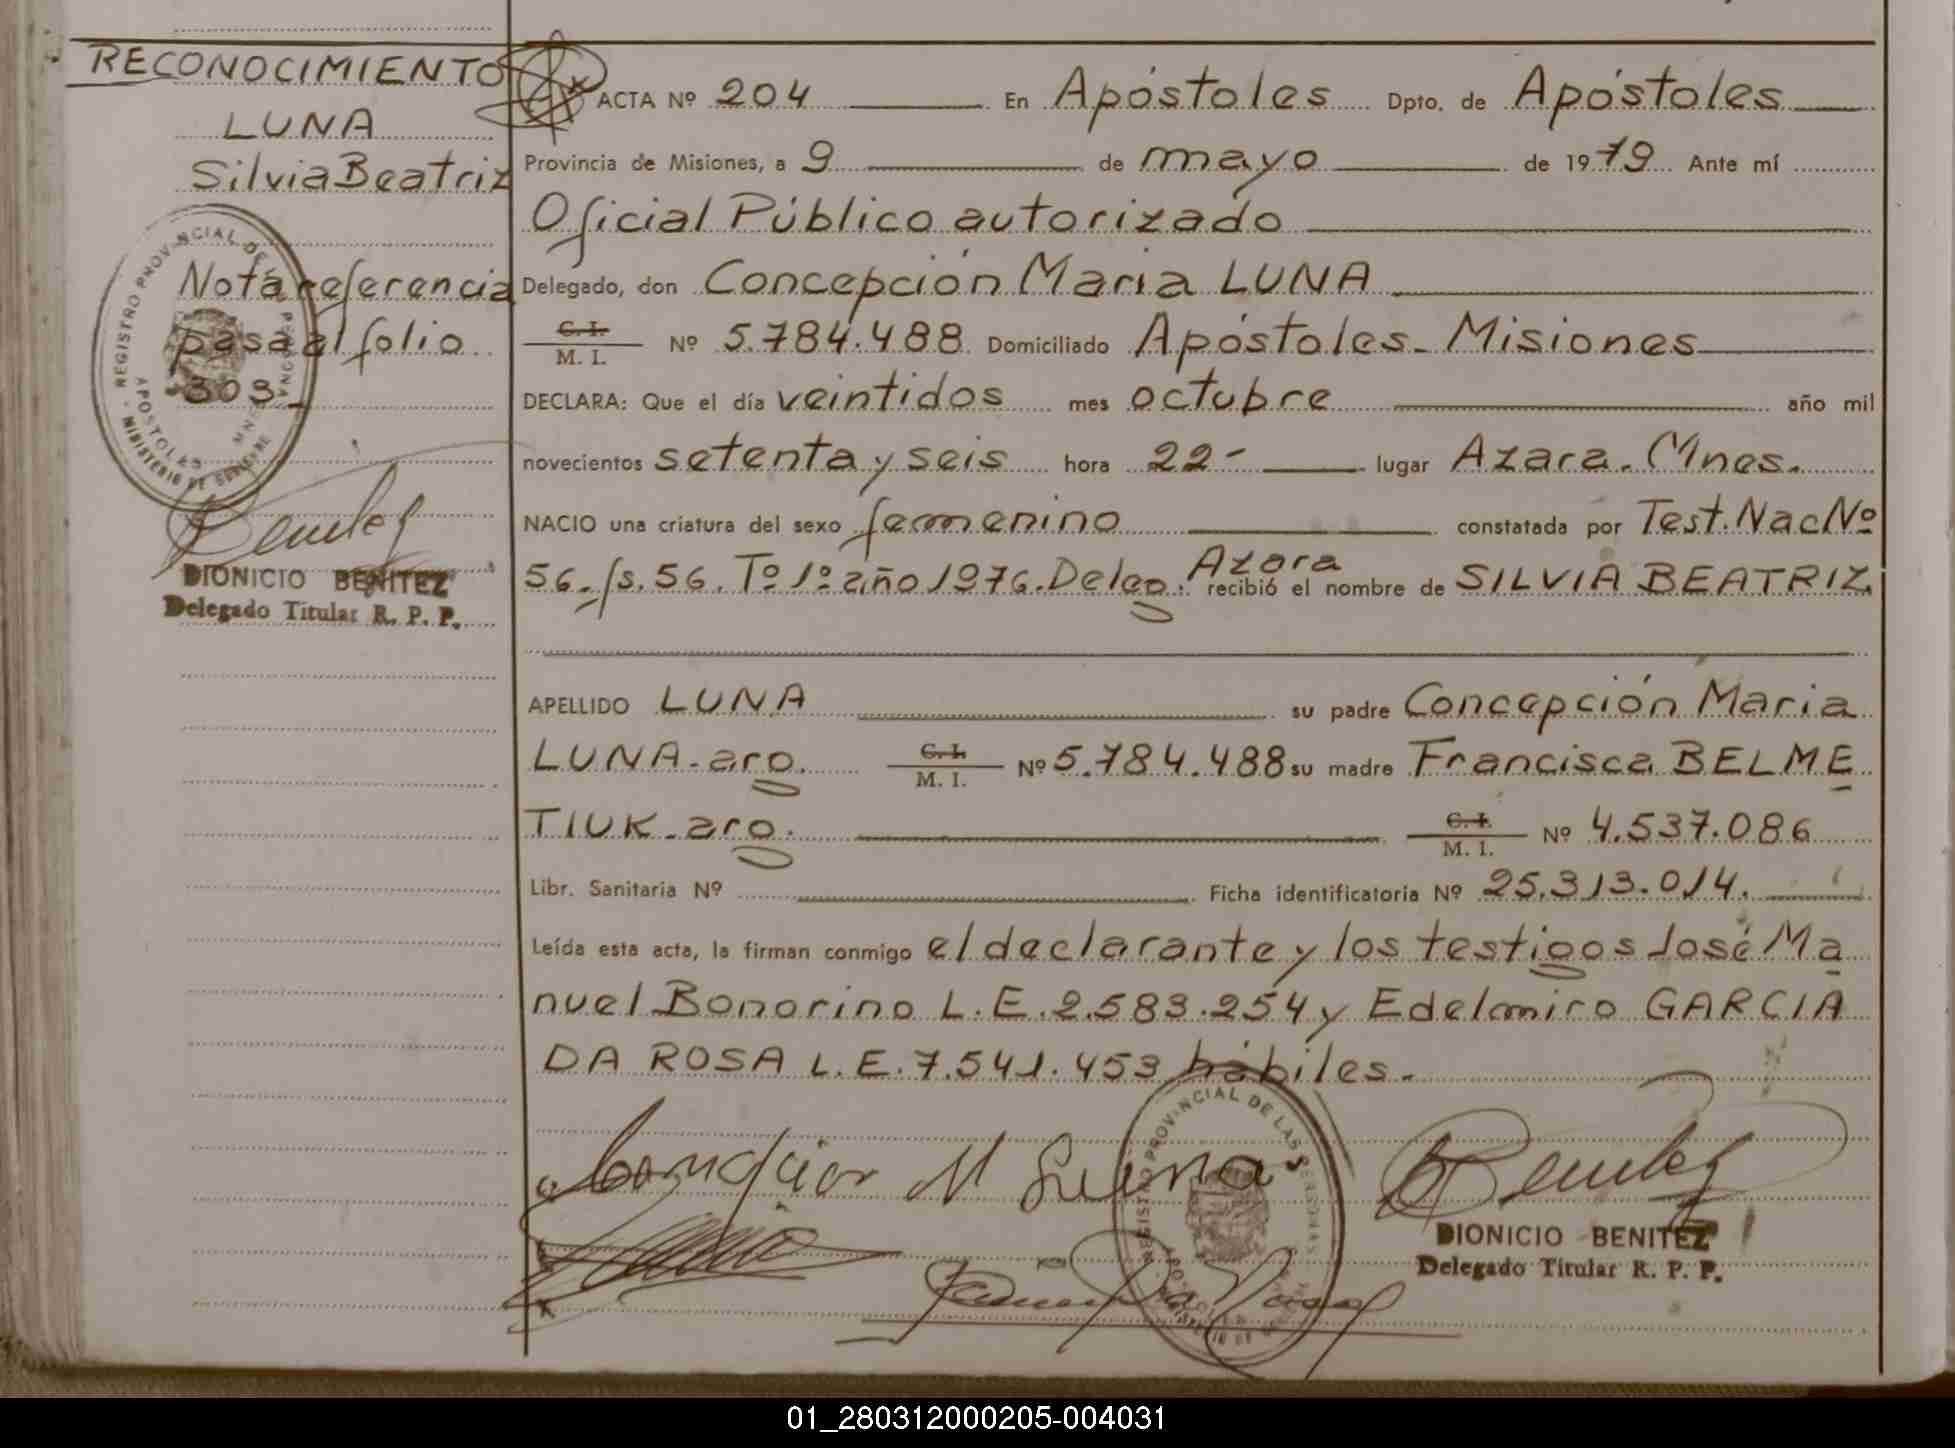 RECONOCIMIENTO
LUNA
Silvia Beatriz
Nota referencia
pasa al folio
303_
REGISTRO PROVINCIAL DE
APOSTOLES
MINISTERIO DE
DIONICIO BENITEZ
Delegado Titular R. P. P.
ACTA Nº 204 En Apóstoles Dpto. de Apóstoles
Provincia de Misiones, a 9 de mayo de 1979 Ante mí
Oficial Público autorizado
Delegado, don Concepción Maria LUNA
C. I.
M. I. Nº 5.784.488 Domiciliado Apóstoles_ Misiones
DECLARA: Que el día veintidos mes octubre año mil
novecientos setenta y seis hora 22- lugar Azara. Mnes.
NACIO una criatura del sexo femenino constatada por Test. Nac Nº
56. fs. 56. Tº 1º año 1976. Deleg. Azara recibió el nombre de SILVIA BEATRIZ
APELLIDO LUNA su padre Concepción Maria
LUNA-arg. C. I. M. I. Nº 5.784.488 su madre Francisca BELME
TIUK-arg. C. I. M. I. Nº 4.537.086
Libr. Sanitaria Nº Ficha identificatoria Nº 25.313.014.
Leída esta acta, la firman conmigo el declarante y los testigos José Ma
nuel Bonorino L.E. 2.583.254 y Edelmiro GARCIA
DA ROSA L.E. 7.541.453 hábiles.-
REGISTRO PROVINCIAL DE LAS PERSONAS
DIONICIO BENITEZ
Delegado Titular R. P. P.
01_280312000205-004031